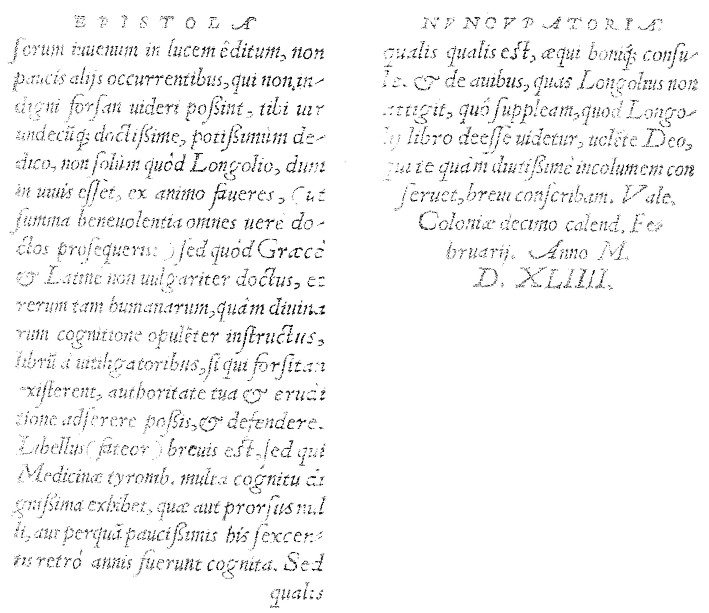 EPISTOLA
sorum iuuenum in lucem êditum, non
paucis alijs occurrentibus, qui non in-
digni forsan uideri poßint, tibi uir
undecūq; doctißime, potißimùm de-
dico, non solùm quòd Longolio, dum
in uiuis esset, ex animo faueres, (ut
summa beneuolentia omnes uerè do-
ctos prosequeris) sed quòd Græcè
& Latinè non uulgariter doctus, et
rerum tam humanarum, quàm diuina
rum cognitione opulêter instructus,
librū à uitiligatoribus, si qui forsitan
existerent, authoritate tua & erudi
tione adserere poßis, & defendere.
Libellus (fateor) breuis est, sed qui
Medicinæ tyromb. multa cognitu di
gnißima exhibet, quæ aut prorsus nul
li, aut perquā paucißimis his sexcen-
tis retrò annis fuerunt cognita. Sed
qualis
NVNCVPATORIA
qualis qualis est, æqui boniq; consu-
le. & de auibus, quas Longolius non
attigit, quò suppleam, quod Longo-
lij libro deesse uidetur, uolête Deo,
qui te quàm diutißimè incolumem con
seruet, breui conscribam. Vale.
Coloniæ decimo calend. Fe-
bruarij. Anno M.
D. XLIIII.